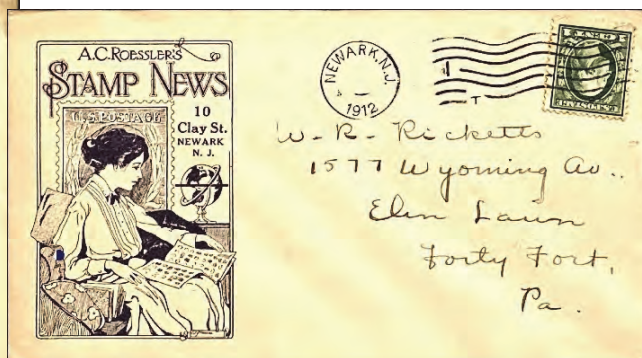 A.C. ROESSLER'S
STAMP NEWS
U.S. POSTAGE
10
Clay St.
NEWARK
N. J.
NEWARK, N.J.
1912
T
W. R. Ricketts
1577 Wyoming Av..
Elen Lawn
Forty Fort,
Pa.